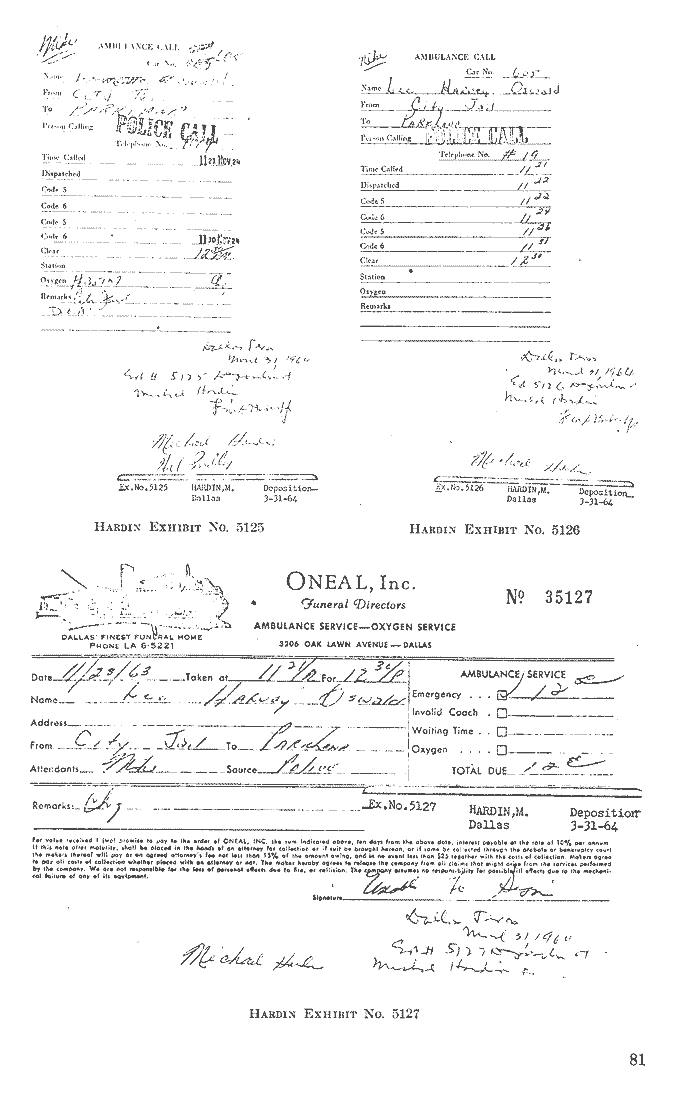 Mike
AMBULANCE CALL
Car No. 605
Name
From City
To
Person Calling POLICE CALL
Telephone No.
Time Called 11 21 NOV 24
Dispatched
Code 5
Code 6
Code 5
Code 6
Clear
Station
Oxygen
Remarks
Dallas Texas
March 31, 1964
Exh # 5125 Deposition of
Michael Hardin
Michael Hardin
Ex.No.5125 HARDIN,M. Deposition
Dallas 3-31-64
HARDIN EXHIBIT No. 5125
Mike
AMBULANCE CALL
Car No. 605
Name Lee Harvey Oswald
From City Jail
To Parkland
Person Calling POLICE CALL
Telephone No. # 19
Time Called 11 21
Dispatched 11 22
Code 5 11 22
Code 6 11 24
Code 5 11 26
Code 6 11 31
Clear 12 30
Station
Oxygen
Remarks
Dallas Texas
March 31, 1964
Exh 5126 Deposition of
Michael Hardin
Michael Hardin
Ex.No.5126 HARDIN,M. Deposition
Dallas 3-31-64
HARDIN EXHIBIT No. 5126
ONEAL, Inc.
Funeral Directors
No 35127
AMBULANCE SERVICE—OXYGEN SERVICE
DALLAS' FINEST FUNERAL HOME
PHONE LA 6-5221
3206 OAK LAWN AVENUE — DALLAS
Date 11/23/63 Taken at 11 21/A For 12 30/P
AMBULANCE SERVICE
Name Lee Harvey Oswald
Emergency . . . 12 00
Invalid Coach .
Address
Waiting Time . .
From City Jail To Parkland
Oxygen . . . .
Attendants Mike Source Police
TOTAL DUE 12 00
Remarks:
Ex.No.5127 HARDIN,M. Deposition
Dallas 3-31-64
For value received I (we) promise to pay to the order of ONEAL, INC. the sum indicated above, ten days from the above date, interest payable at the rate of 10% per annum.
If this note after maturity, shall be placed in the hands of an attorney for collection or if suit be brought hereon, or if same be collected through the probate or bankruptcy court
the makers thereof will pay as an agreed attorney's fee not less than 15% of the amount owing, and in no event less than $25 together with the costs of collection. Makers agree
to pay all costs of collection whether placed with an attorney or not. The maker hereby agrees to release the company from all claims that might arise from the services performed
by the company. We are not responsible for the loss of personal effects due to fire, or collision. The company assumes no responsibility for possible ill effects due to the mechani-
cal failure of any of its equipment.
Signature Unable To Sign
Dallas Texas
March 31, 1964
Exh # 5127 Deposition of
Michael Hardin
Michael Hardin
HARDIN EXHIBIT No. 5127
81